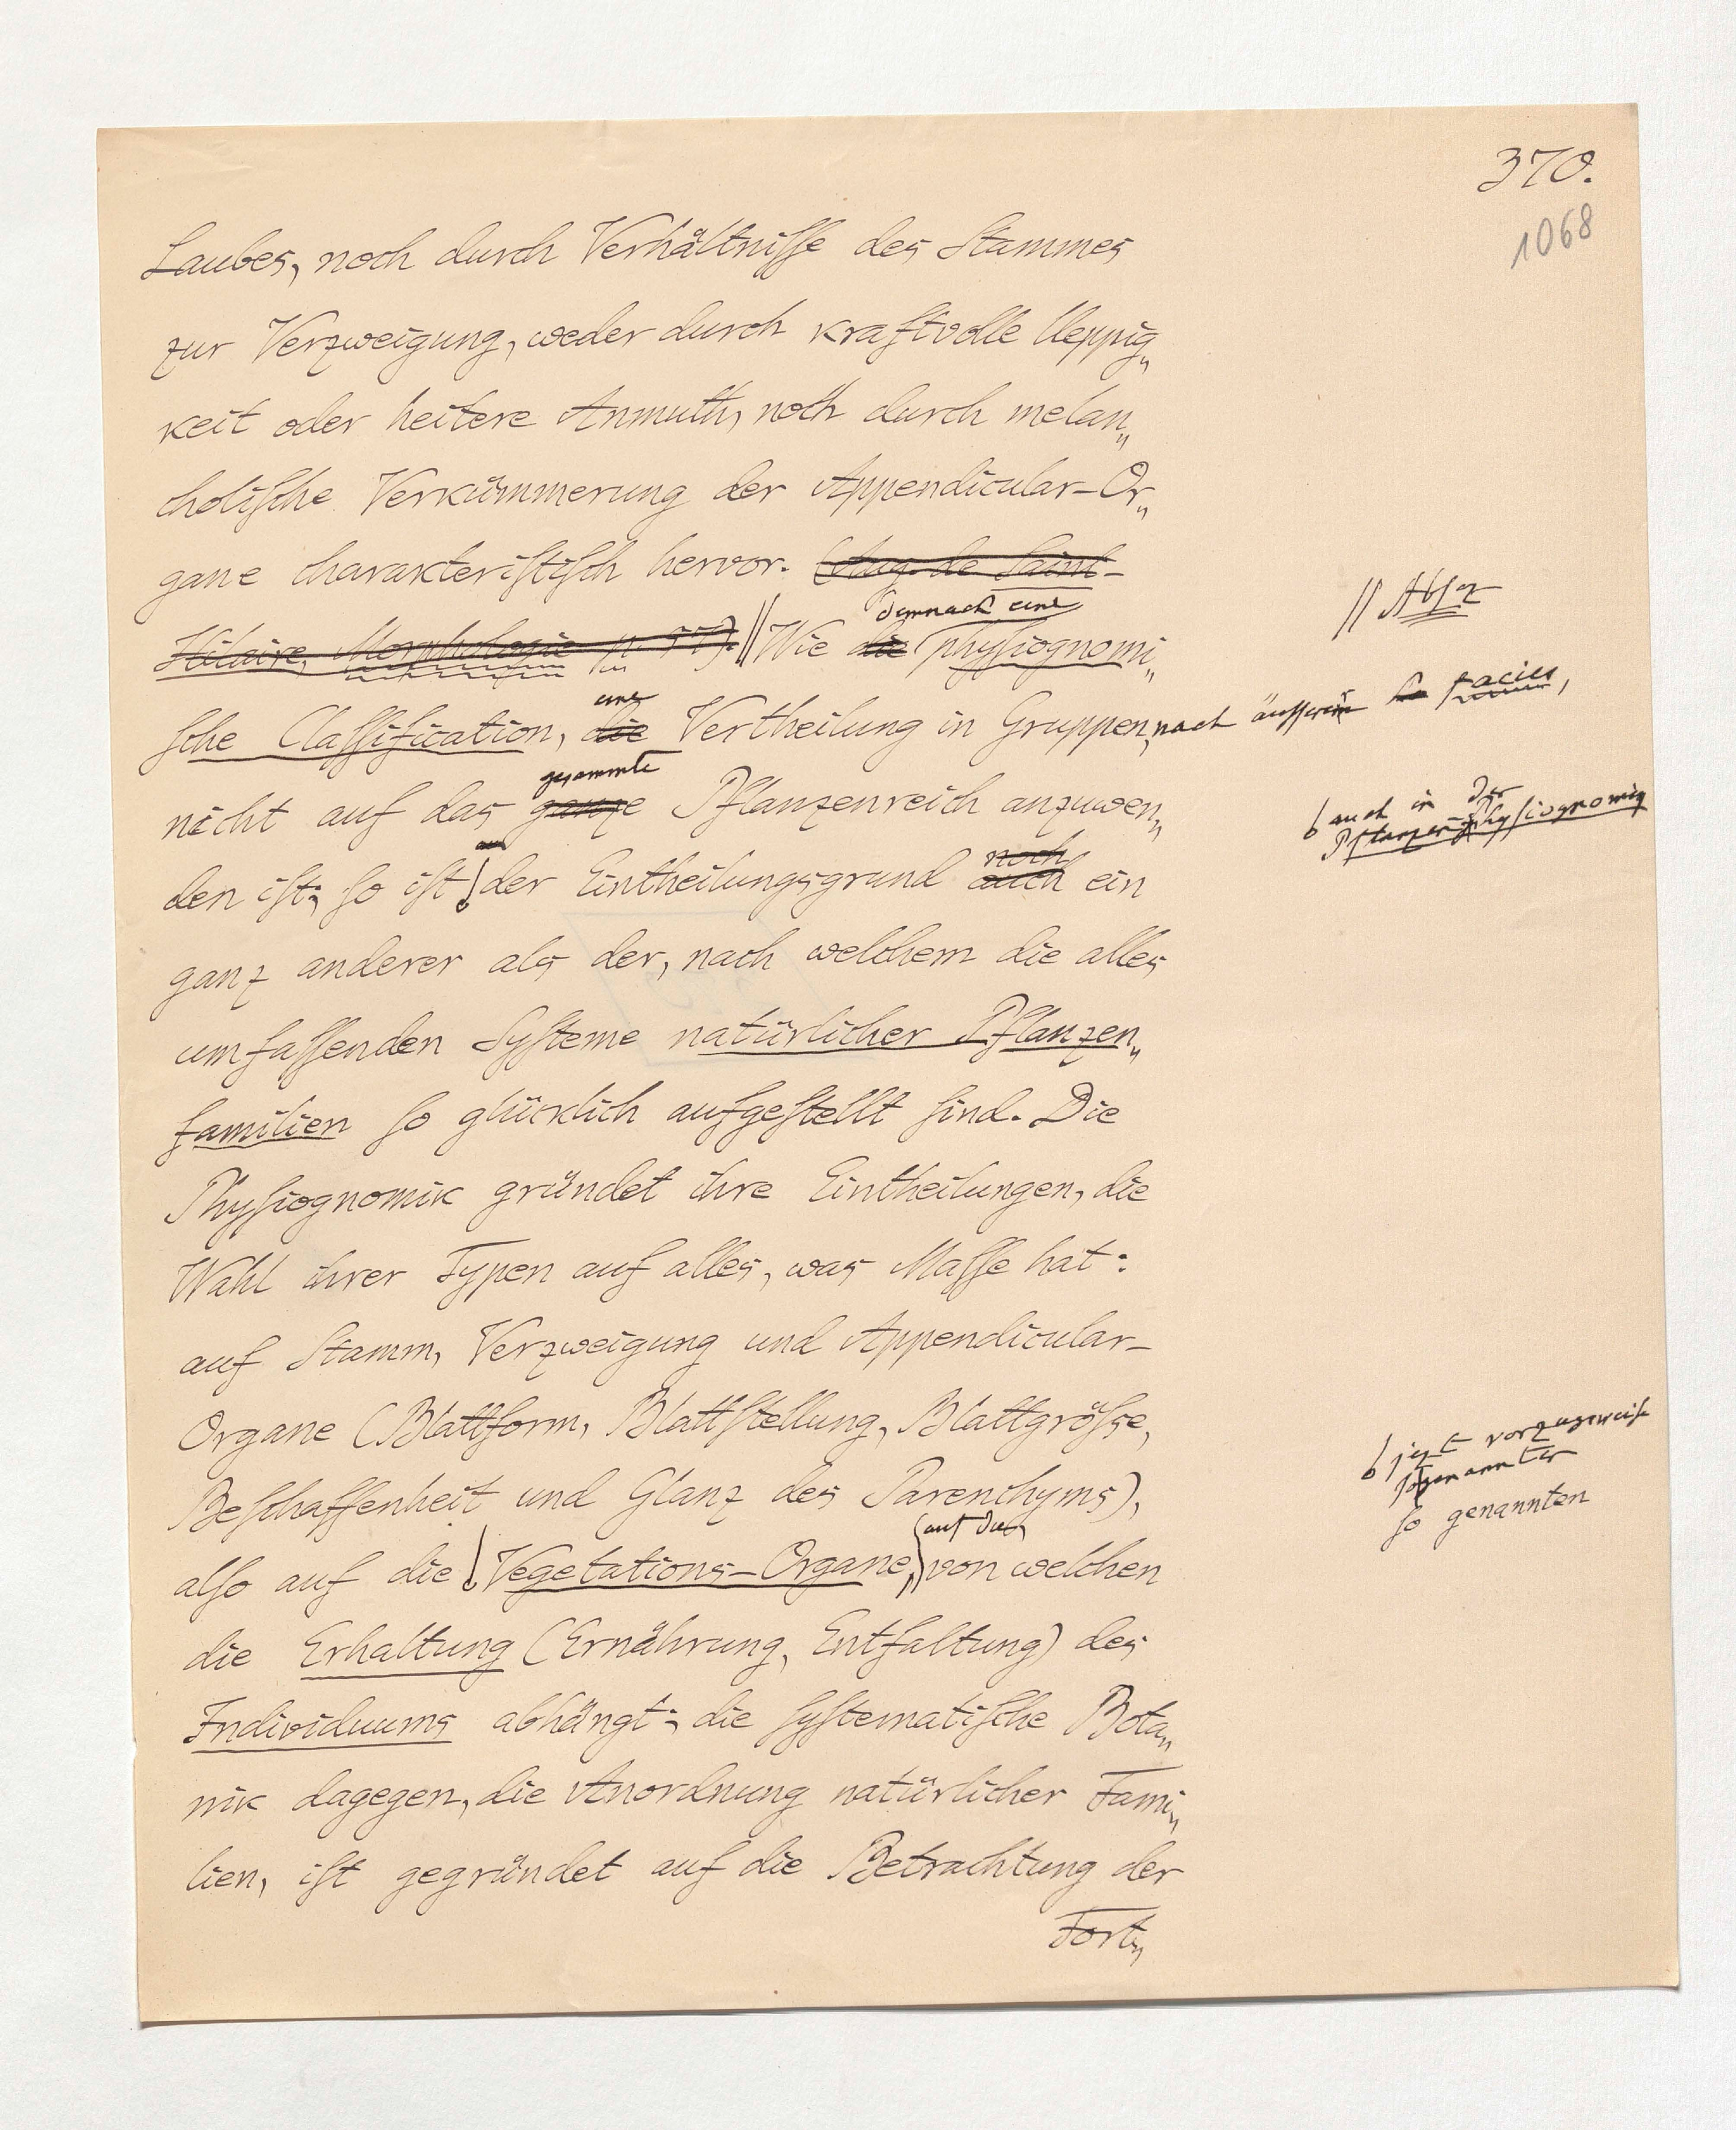 370.
1068
Laubes, noch durch Verhältnisse des Stammes
zur Verzweigung, weder durch kraftvolle Ueppig„
keit oder heitere Anmuth, noch durch melan„
cholische Verkümmerung der Appendicular-Or„
gane charakteristisch hervor. (Aug. de Saint-
demnach eine // Abs
Hilaire, Morphologie p. 57). // Wie die physiognomi„
eine
sche Classification, die Vertheilung in Gruppen, nach äusserer facies,
gesammte
nicht auf das ganze Pflanzenreich anzuwen„
auch in der
Pflanzen-Physiognomik
noch
den ist; so ist der Eintheilungsgrund auch ein
ganz anderer als der, nach welchem die alles
umfassenden Systeme natürlicher Pflanzen„
familien so glücklich aufgestellt sind. Die
Physiognomik gründet ihre Eintheilungen, die
Wahl ihrer Typen auf alles, was Masse hat:
auf Stamm, Verzweigung und Appendicular-
Organe (Blattform, Blattstellung, Blattgrösse,
Beschaffenheit und Glanz des Parenchyms),
jezt vorzugsweise
sogenannten
so genannten
auf die
also auf die Vegetations-Organe, von welchen
die Erhaltung (Ernährung, Entfaltung) des
Individuums abhängt; die systematische Bota„
nik dagegen, die Anordnung natürlicher Fami„
lien, ist gegründet auf die Betrachtung der
Fort„